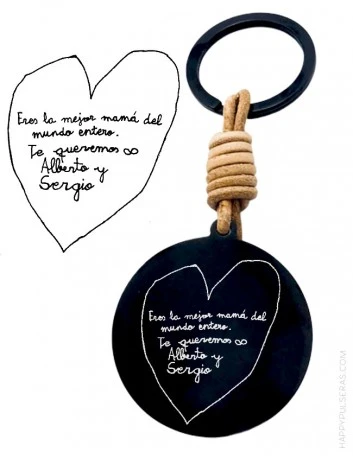 Eres la mejor mamá del
mundo entero.
Te queremos ∞
Alberto y
Sergio
Eres la mejor mamá del
mundo entero.
Te queremos ∞
Alberto y
Sergio
HAPPYPULSERAS.COM